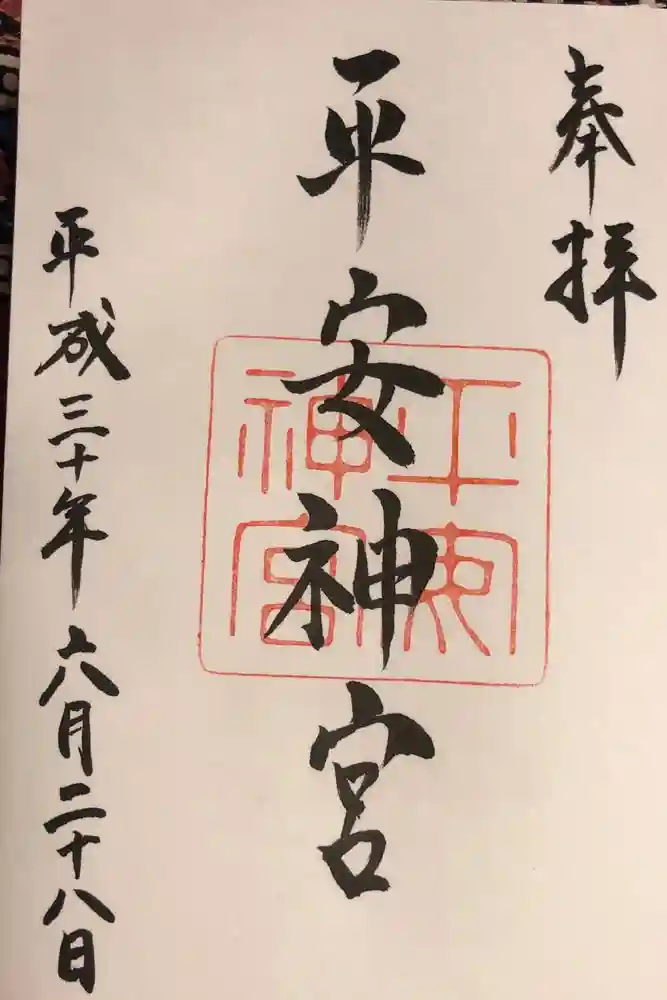 奉拝
平安神宮
平安神宮
平成三十年六月二十八日